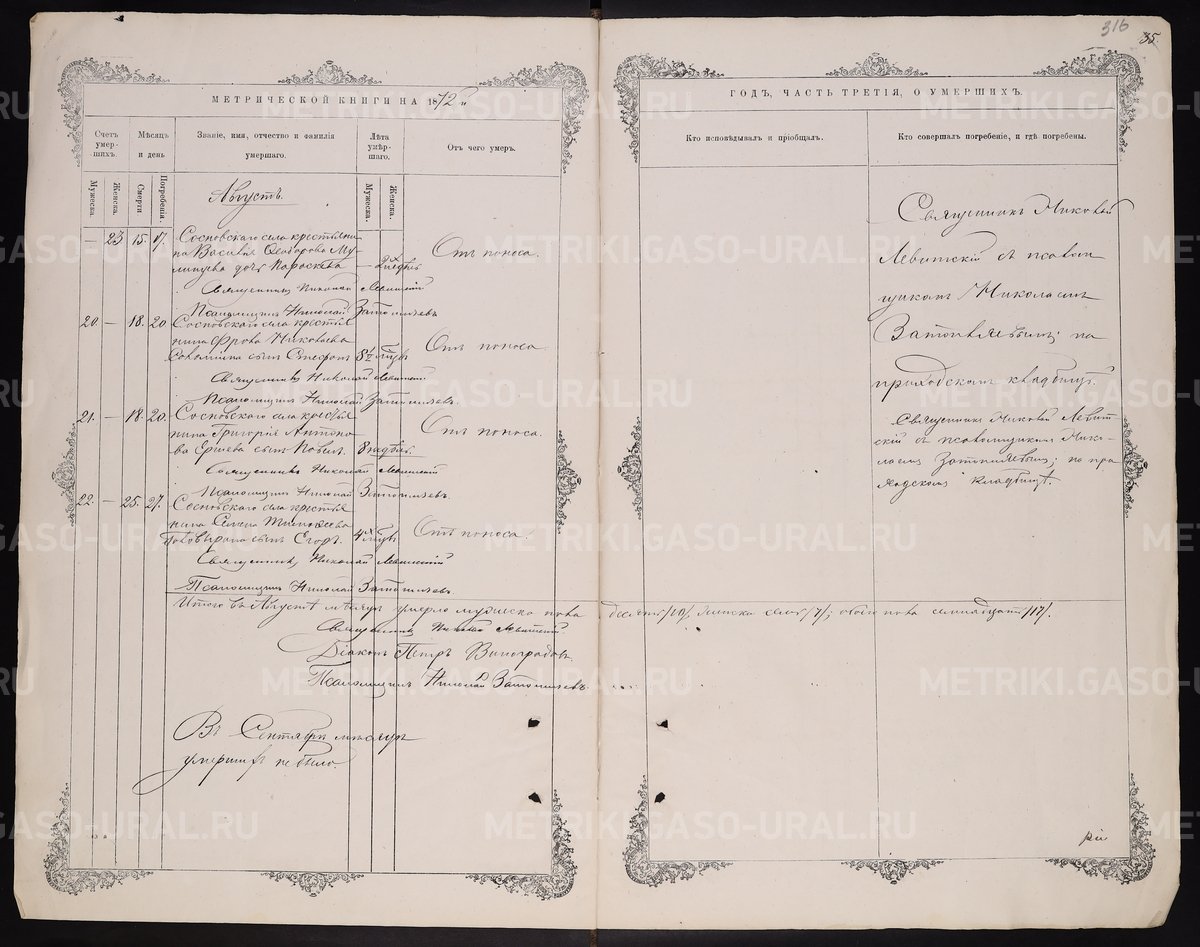 316
35
МЕТРИЧЕСКОЙ КНИГИ НА 1872 й
ГОДЪ, ЧАСТЬ ТРЕТІЯ, О УМЕРШИХЪ.
Счетъ умер-шихъ.
Мѣсяцъ и день
Званіе, имя, отчество и фамилія умершаго.
Лѣта умер-шаго.
Отъ чего умеръ.
Кто исповѣдывалъ и пріобщалъ.
Кто совершалъ погребеніе, и гдѣ погребены.
Мужеска.
Женска.
Смерти
Погребенія.
Мужеска.
Женска.
Августъ.
23 15. 17. Сосновскаго села крестьяни-
на Василія Ѳеодорова
дочь Параскева — 2 Отъ поноса.
Священникъ Николай Левитскій
Псаломщикъ Николай
20. — 18. 20. Сосновскаго села крестья-
нина Фрола Николаева
сынъ Стефанъ 8 Отъ поноса
Священникъ Николай Левитскій
Псаломщикъ Николай
21. — 18. 20. Сосновскаго села крестья-
нина Григорія Антоно-
ва Ершева сынъ Павелъ. 8 Отъ поноса.
Священникъ Николай Левитскій
Псаломщикъ Николай
22. — 25. 27. Сосновскаго села крестья-
нина Семена Тимофеева
сынъ Егоръ. 4 Отъ поноса.
Священникъ Николай Левитскій
Псаломщикъ Николай
Итого въ Августѣ мѣсяцѣ умерло мужеска пола десять /10/, женска семь /7/; обоего пола семнадцать /17/.
Священникъ Николай Левитскій
Діаконъ Петръ Виноградовъ
Псаломщикъ Николай
Въ Сентябрѣ мѣсяцѣ
умершихъ не было.
Священникъ Николай
Левитскій съ псалом-
щикомъ Николаемъ
на
приходскомъ кладбищѣ.
Священникъ Николай Левит-
скій съ псаломщикомъ Нико-
лаемъ на при-
ходскомъ кладбищѣ.
METRIKI.GASO-URAL.RU